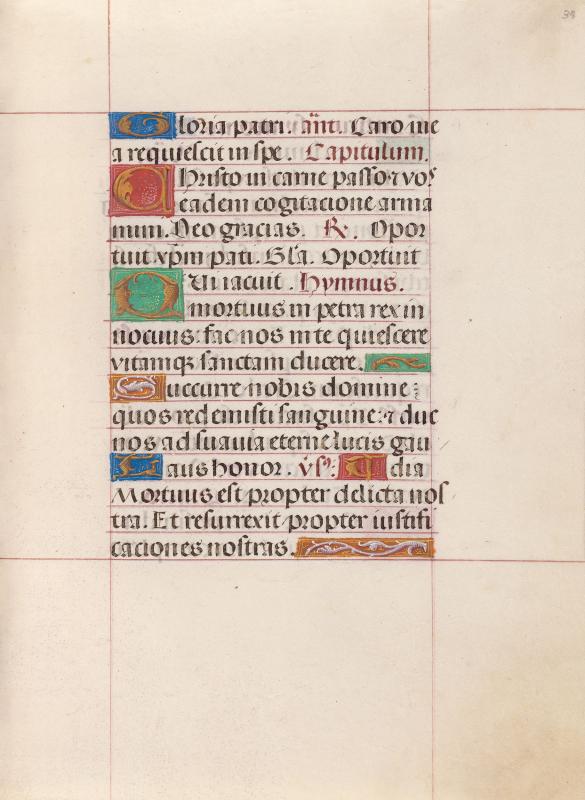 39
Gloria patri. añt. Caro me
a requiescit in spe. Capitulum.
Christo in carne passo ⁊ vos
eadem cogitacione arma
mini. Deo gracias. ℟. Opor
tuit xp̄m pati. Gl̄a. Oportuit
iacuit. Hymnus.
O mortuus in petra rex in
nocuus: fac nos in te quiescere
vitamqꝫ sanctam ducere.
Succurre nobis domine:
quos redemisti sanguine: ⁊ duc
nos ad suavia eterne lucis gau
dia Laus honor. v̄s:
Mortuus est propter delicta nos
tra. Et resurrexit propter iustifi
caciones nostras.